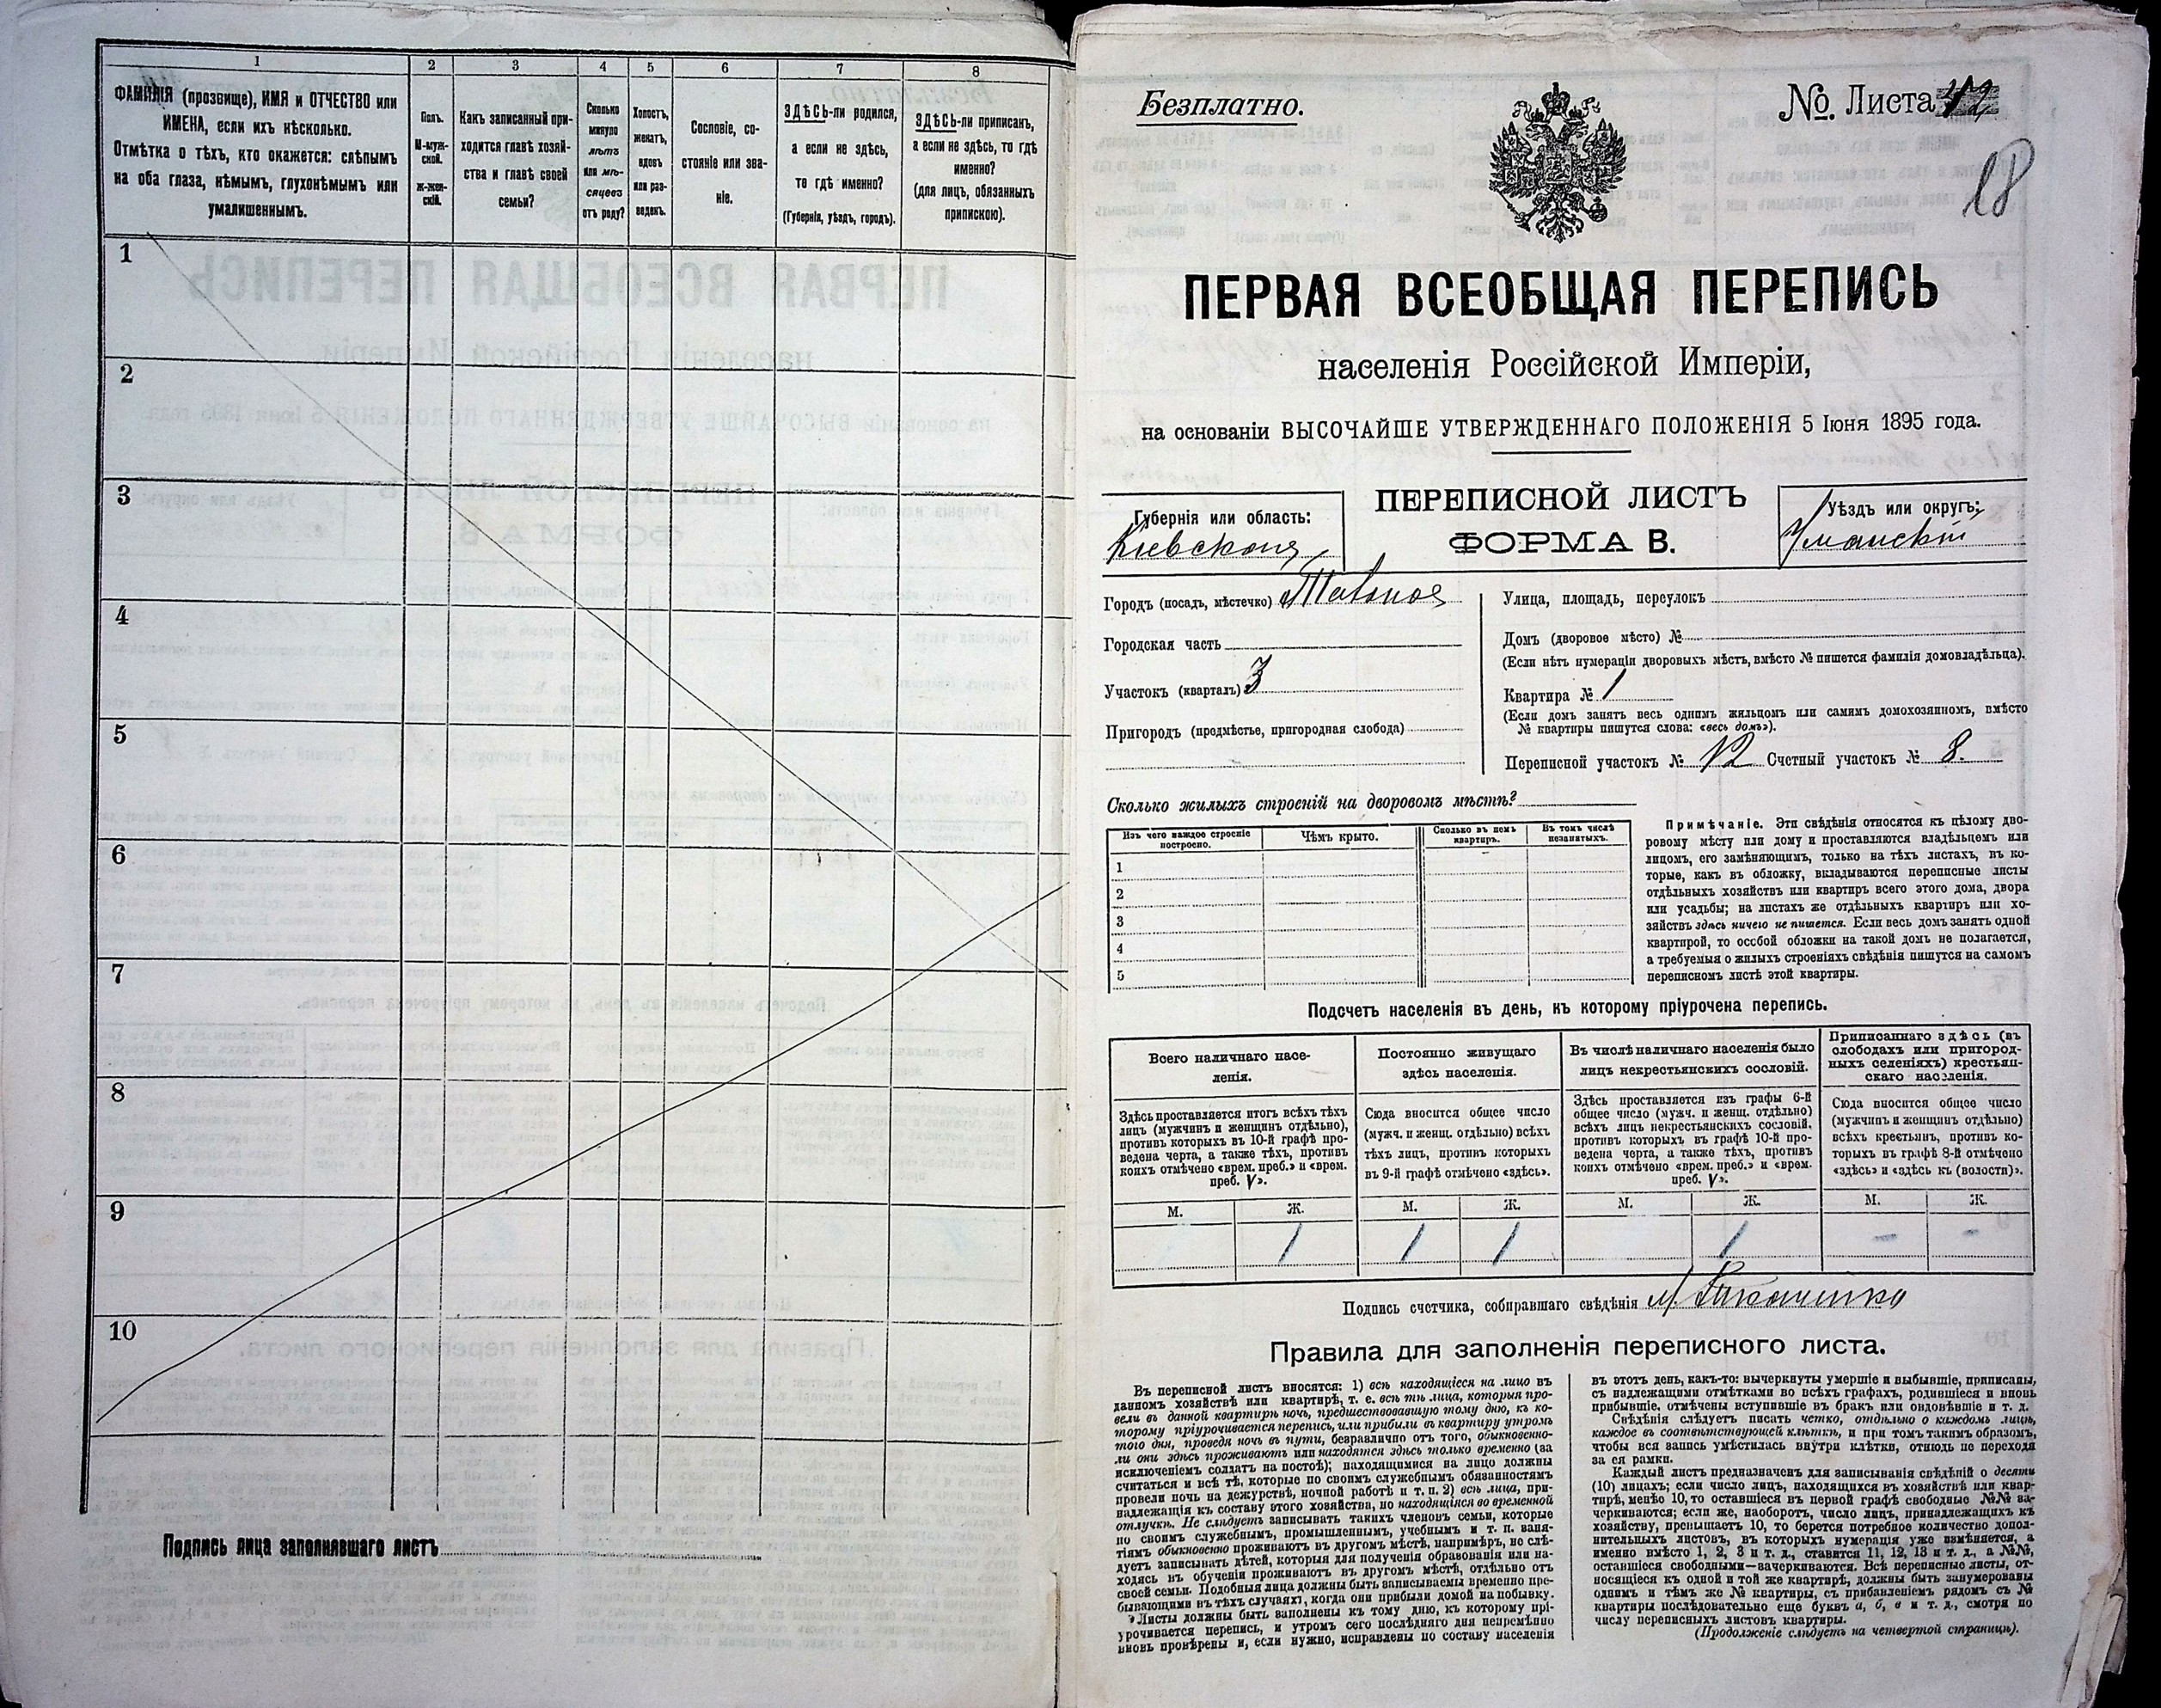 1 2 3 4 5 6 7 8
ФАМИЛІЯ (прозвище), ИМЯ и ОТЧЕСТВО или
ИМЕНА, если ихъ нѣсколько.
Отмѣтка о тѣхъ, кто окажется: слѣпымъ
на оба глаза, нѣмымъ, глухонѣмымъ или
умалишеннымъ.
Полъ.
М-муж-
ской.
Ж-жен-
скій.
Какъ записанный при-
ходится главѣ хозяй-
ства и главѣ своей
семьи?
Сколько
минуло
лѣтъ
или мѣ-
сяцевъ
отъ роду?
Холостъ,
женатъ,
вдовъ
или раз-
веденъ.
Сословіе, со-
стояніе или зва-
ніе.
ЗДѢСЬ-ли родился,
а если не здѣсь,
то гдѣ именно?
(Губернія, уѣздъ, городъ).
ЗДѢСЬ-ли приписанъ,
а если не здѣсь, то гдѣ
именно?
(для лицъ, обязанныхъ
припискою).
1
2
3
4
5
6
7
8
9
10
Подпись лица заполнявшаго листъ
Безплатно.
№. Листа
18
ПЕРВАЯ ВСЕОБЩАЯ ПЕРЕПИСЬ
населенія Россійской Имперіи,
на основаніи ВЫСОЧАЙШЕ УТВЕРЖДЕННАГО ПОЛОЖЕНІЯ 5 Іюня 1895 года.
Губернія или область:
Кіевская
ПЕРЕПИСНОЙ ЛИСТЪ
ФОРМА В.
Уѣздъ или округъ:
Уманскій
Городъ (посадъ, мѣстечко) Тальное
Городская часть
Участокъ (кварталъ) 3
Пригородъ (предмѣстье, пригородная слобода)
Улица, площадь, переулокъ
Домъ (дворовое мѣсто) №
(Если нѣтъ нумераціи дворовыхъ мѣстъ, вмѣсто № пишется фамилія домовладѣльца).
Квартира № 1
(Если домъ занятъ весь однимъ жильцомъ или самимъ домохозяиномъ, вмѣсто
№ квартиры пишутся слова: «весь домъ»).
Переписной участокъ № 12 Счетный участокъ № 8.
Сколько жилыхъ строеній на дворовомъ мѣстѣ?
Изъ чего каждое строеніе
построено.
Чѣмъ крыто.
Сколько въ немъ
квартиръ.
Въ томъ числѣ
незанятыхъ.
1
2
3
4
5
Примѣчаніе. Эти свѣдѣнія относятся къ цѣлому дво-
ровому мѣсту или дому и проставляются владѣльцемъ или
лицомъ, его замѣняющимъ, только на тѣхъ листахъ, въ ко-
торые, какъ въ обложку, вкладываются переписные листы
отдѣльныхъ хозяйствъ или квартиръ всего этого дома, двора
или усадьбы; на листахъ же отдѣльныхъ квартиръ или хо-
зяйствъ здѣсь ничего не пишется. Если весь домъ занятъ одной
квартирой, то особой обложки на такой домъ не полагается,
а требуемыя о жилыхъ строеніяхъ свѣдѣнія пишутся на самомъ
переписномъ листѣ этой квартиры.
Подсчетъ населенія въ день, къ которому пріурочена перепись.
Всего наличнаго насе-
ленія.
Здѣсь проставляется итогъ всѣхъ тѣхъ
лицъ (мужчинъ и женщинъ отдѣльно),
противъ которыхъ въ 10-й графѣ про-
ведена черта, а также тѣхъ, противъ
коихъ отмѣчено «врем. преб.» и «врем.
преб. V».
Постоянно живущаго
здѣсь населенія.
Сюда вносится общее число
(мужч. и женщ. отдѣльно) всѣхъ
тѣхъ лицъ, противъ которыхъ
въ 9-й графѣ отмѣчено «здѣсь».
Въ числѣ наличнаго населенія было
лицъ некрестьянскихъ сословій.
Здѣсь проставляется изъ графы 6-й
общее число (мужч. и женщ. отдѣльно)
всѣхъ лицъ некрестьянскихъ сословій,
противъ которыхъ въ графѣ 10-й про-
ведена черта, а также тѣхъ, противъ
коихъ отмѣчено «врем. преб.» и «врем.
преб. V».
Приписаннаго здѣсь (въ
слободахъ или пригород-
ныхъ селеніяхъ) крестьян-
скаго населенія.
Сюда вносится общее число
(мужчинъ и женщинъ отдѣльно)
всѣхъ крестьянъ, противъ ко-
торыхъ въ графѣ 8-й отмѣчено
«здѣсь» и «здѣсь къ (волости)».
М. Ж. М. Ж. М. Ж. М. Ж.
1 1 1 1 - -
Подпись счетчика, собиравшаго свѣдѣнія
Правила для заполненія переписного листа.
Въ переписной листъ вносятся: 1) всѣ находящіеся на лицо въ
данномъ хозяйствѣ или квартирѣ, т. е. всѣ тѣ лица, которыя про-
вели въ данной квартирѣ ночь, предшествовавшую тому дню, къ ко-
торому пріурочивается перепись, или прибыли въ квартиру утромъ
того дня, проведя ночь въ пути, безразлично отъ того, обыкновенно-
ли они здѣсь проживаютъ или находятся здѣсь только временно (за
исключеніемъ солдатъ на постоѣ); находящимися на лицо должны
считаться и всѣ тѣ, которые по своимъ служебнымъ обязанностямъ
провели ночь на дежурствѣ, ночной работѣ и т. п. 2) всѣ лица, при-
надлежащія къ составу этого хозяйства, но находящіяся во временной
отлучкѣ. Не слѣдуетъ записывать такихъ членовъ семьи, которые
по своимъ служебнымъ, промышленнымъ, учебнымъ и т. п. заня-
тіямъ обыкновенно проживаютъ въ другомъ мѣстѣ, напримѣръ, не слѣ-
дуетъ записывать дѣтей, которыя для полученія образованія или на-
ходясь въ обученіи проживаютъ въ другомъ мѣстѣ, отдѣльно отъ
своей семьи. Подобныя лица должны быть записываемы временно пре-
бывающими въ тѣхъ случаяхъ, когда они прибыли домой на побывку.
Листы должны быть заполнены къ тому дню, къ которому прі-
урочивается перепись, и утромъ сего послѣдняго дня непремѣнно
вновь провѣрены и, если нужно, исправлены по составу населенія
въ этотъ день, какъ-то: вычеркнуты умершіе и выбывшіе, приписаны,
съ надлежащими отмѣтками во всѣхъ графахъ, родившіеся и вновь
прибывшіе, отмѣчены вступившіе въ бракъ или овдовѣвшіе и т. д.
Свѣдѣнія слѣдуетъ писать четко, отдѣльно о каждомъ лицѣ,
каждое въ соотвѣтствующей клѣткѣ, и при томъ такимъ образомъ,
чтобы вся запись умѣстилась внутри клѣтки, отнюдь не переходя
за ея рамки.
Каждый листъ предназначенъ для записыванія свѣдѣній о десяти
(10) лицахъ; если число лицъ, находящихся въ хозяйствѣ или квар-
тирѣ, менѣе 10, то оставшіеся въ первой графѣ свободные №№ за-
черкиваются; если же, наоборотъ, число лицъ, принадлежащихъ къ
хозяйству, превышаетъ 10, то берется потребное количество допол-
нительныхъ листовъ, въ которыхъ нумерація уже измѣняется, а
именно вмѣсто 1, 2, 3 и т. д., ставится 11, 12, 13 и т. д., а №№,
оставшіеся свободными—зачеркиваются. Всѣ переписные листы, от-
носящіеся къ одной и той же квартирѣ, должны быть занумерованы
однимъ и тѣмъ же № квартиры, съ прибавленіемъ рядомъ съ №
квартиры послѣдовательно еще буквъ а, б, в и т. д., смотря по
числу переписныхъ листовъ квартиры.
(Продолженіе слѣдуетъ на четвертой страницѣ).